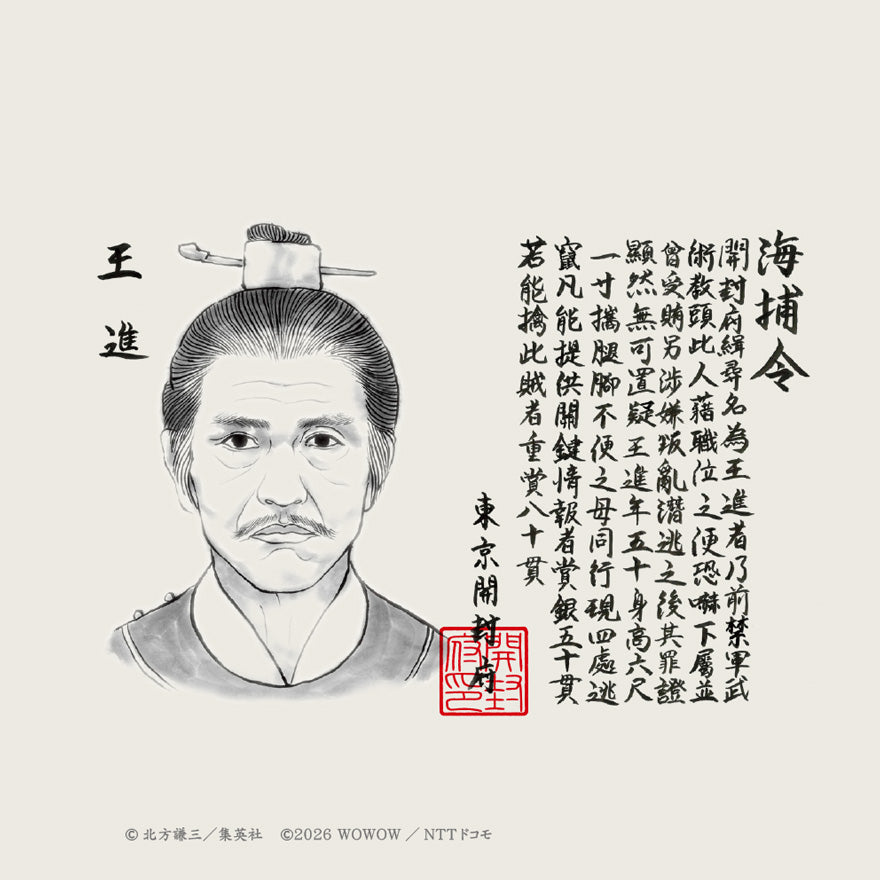 海捕令
開封府緝尋名為王進者乃前禁軍武
術教頭此人藉職位之便恐嚇下屬並
曾受賄另涉嫌叛亂潛逃之後其罪證
顯然無可置疑王進年五十身高六尺
一寸攜腿腳不便之母同行現四處逃
竄凡能提供關鍵情報者賞銀五十貫
若能擒此賊者重賞八十貫
東京開封府
開封府印
王進
© 北方謙三／集英社　©2026 WOWOW ／ NTTドコモ